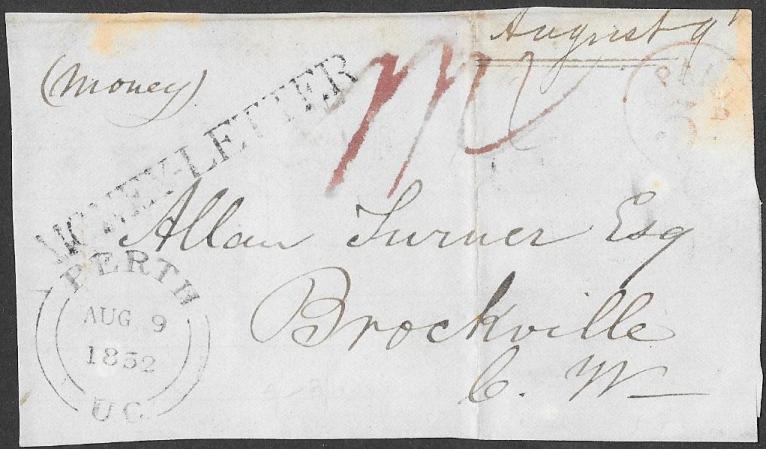 August 9
(Money)
MONEY-LETTER
PAID
Allan Turner Esq
Brockville
C. W
PERTH
AUG 9
1852
U.C.